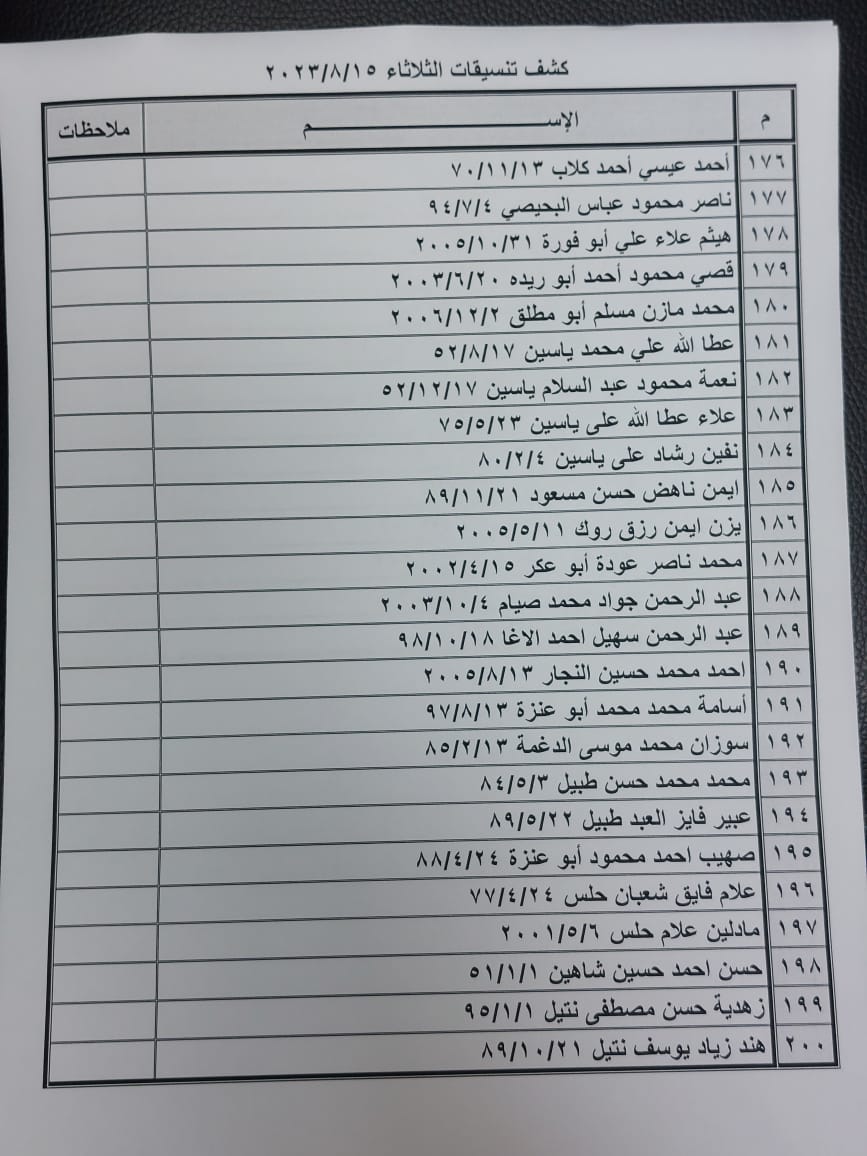 كشف تنسيقات الثلاثاء ٢٠٢٣/٨/١٥
م الإســـــــــــــــــــــم ملاحظات
١٧٦ أحمد عيسي أحمد كلاب ٧٠/١١/١٣
١٧٧ ناصر محمود عباس البحيصي ٩٤/٧/٤
١٧٨ هيثم علاء علي أبو فورة ٢٠٠٥/١٠/٣١
١٧٩ قصي محمود أحمد أبو ريده ٢٠٠٣/٦/٢٠
١٨٠ محمد مازن مسلم أبو مطلق ٢٠٠٦/١٢/٢
١٨١ عطا الله علي محمد ياسين ٥٢/٨/١٧
١٨٢ نعمة محمود عبد السلام ياسين ٥٢/١٢/١٧
١٨٣ علاء عطا الله على ياسين ٧٥/٥/٢٣
١٨٤ نفين رشاد على ياسين ٨٠/٢/٤
١٨٥ ايمن ناهض حسن مسعود ٨٩/١١/٢١
١٨٦ يزن ايمن رزق روك ٢٠٠٥/٥/١١
١٨٧ محمد ناصر عودة أبو عكر ٢٠٠٢/٤/١٥
١٨٨ عبد الرحمن جواد محمد صيام ٢٠٠٣/١٠/٤
١٨٩ عبد الرحمن سهيل احمد الاغا ٩٨/١٠/١٨
١٩٠ احمد محمد حسين النجار ٢٠٠٥/٨/١٣
١٩١ أسامة محمد محمد أبو عنزة ٩٧/٨/١٣
١٩٢ سوزان محمد موسى الدغمة ٨٥/٢/١٣
١٩٣ محمد محمد حسن طبيل ٨٤/٥/٣
١٩٤ عبير فايز العبد طبيل ٨٩/٥/٢٢
١٩٥ صهيب احمد محمود أبو عنزة ٨٨/٤/٢٤
١٩٦ علام فايق شعبان حلس ٧٧/٤/٢٤
١٩٧ مادلين علام حلس ٢٠٠١/٥/٦
١٩٨ حسن احمد حسين شاهين ٥١/١/١
١٩٩ زهدية حسن مصطفى نتيل ٩٥/١/١
٢٠٠ هند زياد يوسف نتيل ٨٩/١٠/٢١